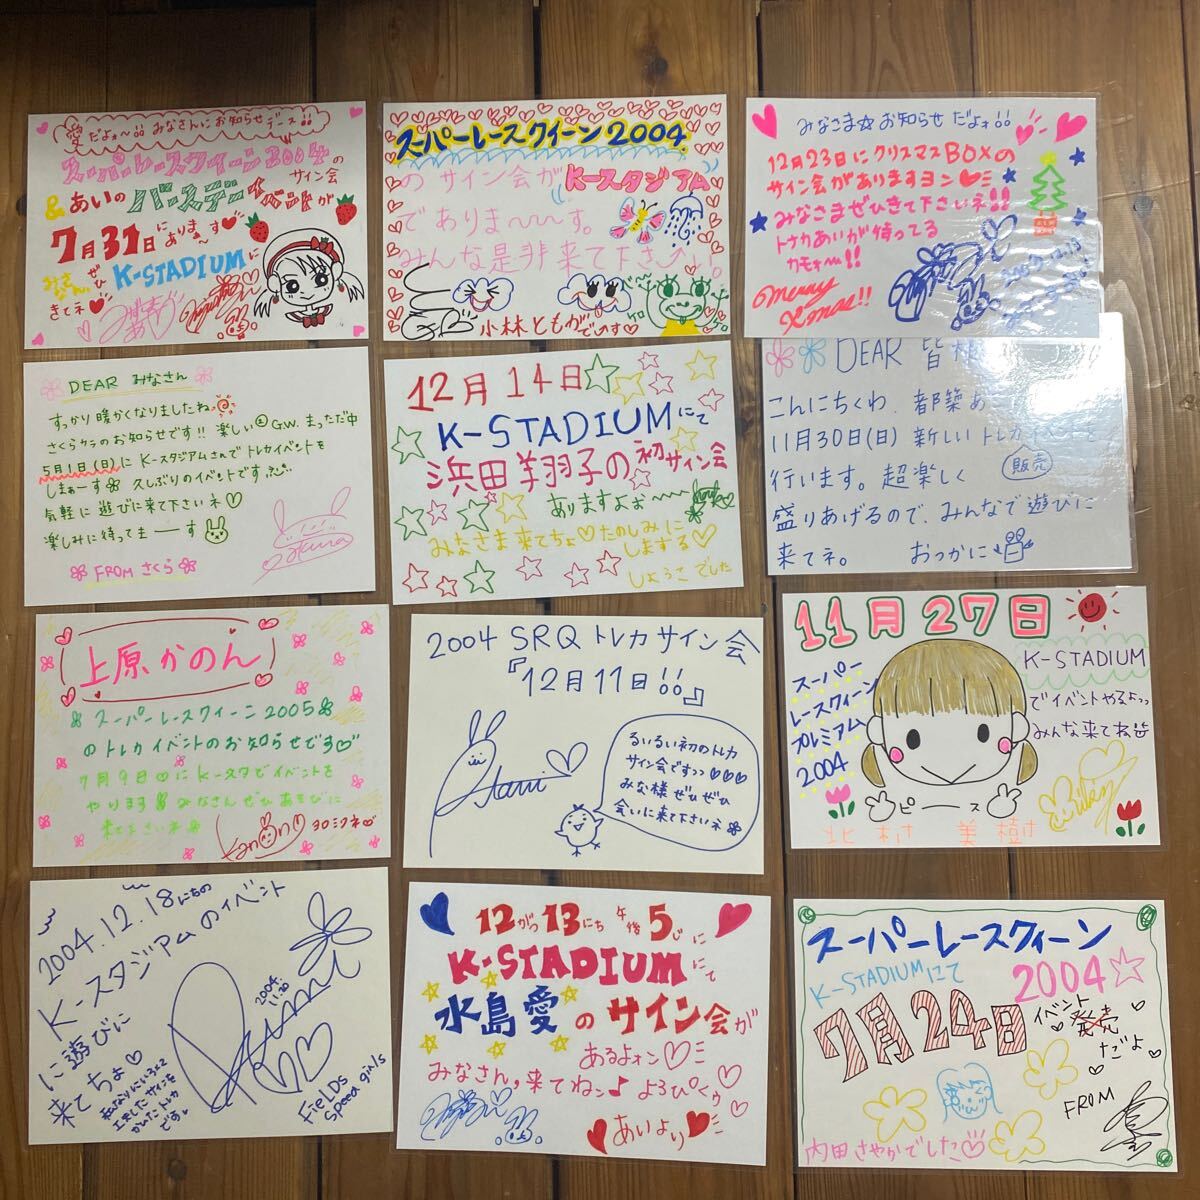 愛だよォ〜!! みなさんにお知らせデース!!
スーパーレースクィーン2004の
&あいのバースデーイベントが
サイン会
7月31日に
ありま〜す♥
みなさん、ぜひ
K-STADIUMに
きてネ♥
スーパーレースクィーン2004.
のサイン会がK-スタジアム
でありま〜〜〜す。
みんな是非来て下さーい。
小林ともかでいす♡
ケロ
ケロ
みなさま☆お知らせだよォ!!
12月23日にクリスマスBOXの
サイン会がありますヨン♥
みなさまぜひきて下さいネ!!
トナカあいが待ってる
カモォ〜!!
Merry
Xmas!!
DEAR みなさん
すっかり暖かくなりましたね
さくらからのお知らせです!! 楽しいG.W.まっただ中
5月1日(日)にK-スタジアムさんでトレカイベントを
しまぁーす 久しぶりのイベントです
気軽に遊びに来て下さいネ♡
楽しみに待ってまーーす
FROM さくら
12月14日
K-STADIUMにて
浜田翔子の初サイン会
ありますよぉ〜〜〜
みなさま来てちょ♡たのしみに
しまする♡
しょうこでした
DEAR 皆様
こんにちくわ、都築あ
11月30日(日)新しいトレカ
販売
行います。超楽しく
盛りあげるので、みんなで遊びに
来てネ。
おっかに
上原かのん
スーパーレースクィーン2005
のトレカイベントのお知らせです♡
7月9日♡にK-スタでイベントを
やります みなさんぜひあそびに
来て下さいネ
Kanon
ヨロシクネ♡
2004 SRQ トレカサイン会
『12月11日!!』
るいるい初のトレカ
サイン会ですっっ♡♡♡
みな様ぜひぜひ
会いに来て下さいネ
11月27日
K-STADIUM
スーパー
レースクィーン
プレミアム
2004
でイベントやるよっっ
みんな来てね
ピース
北村美樹
2004.12.18にちの
K-スタジアムのイベント
に遊びに
来てちょ♡
2004
11.20
FieLDs
Speed girls
12がつ13にち 午後5じに
K-STADIUMにて
水島愛のサイン会が
あるよォン♡
みなさん,来てねッ♪ よろぴくゥ♡
あいより
スーパーレースクィーン
K-STADIUMにて
2004☆
7月24日
イベント
だよ
FROM
内田さやかでした♡